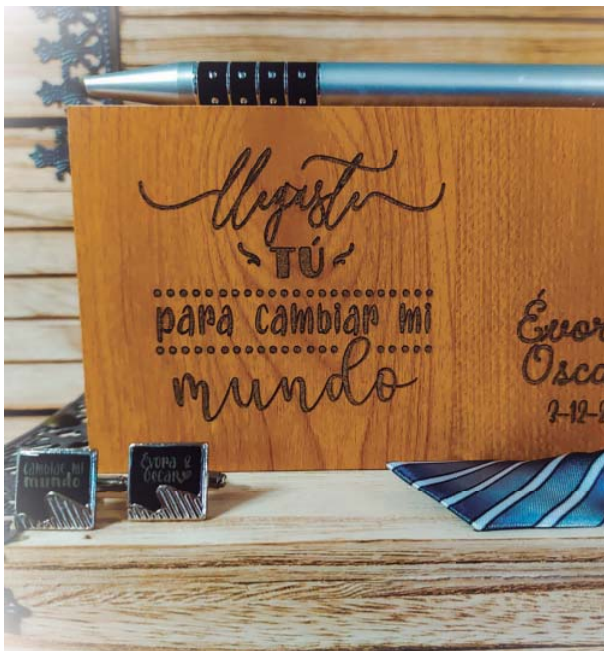 llegaste
TÚ
para cambiar mi
mundo
Évor
Osca
3-12-2
cambiar mi
mundo
Évora &
Oscar